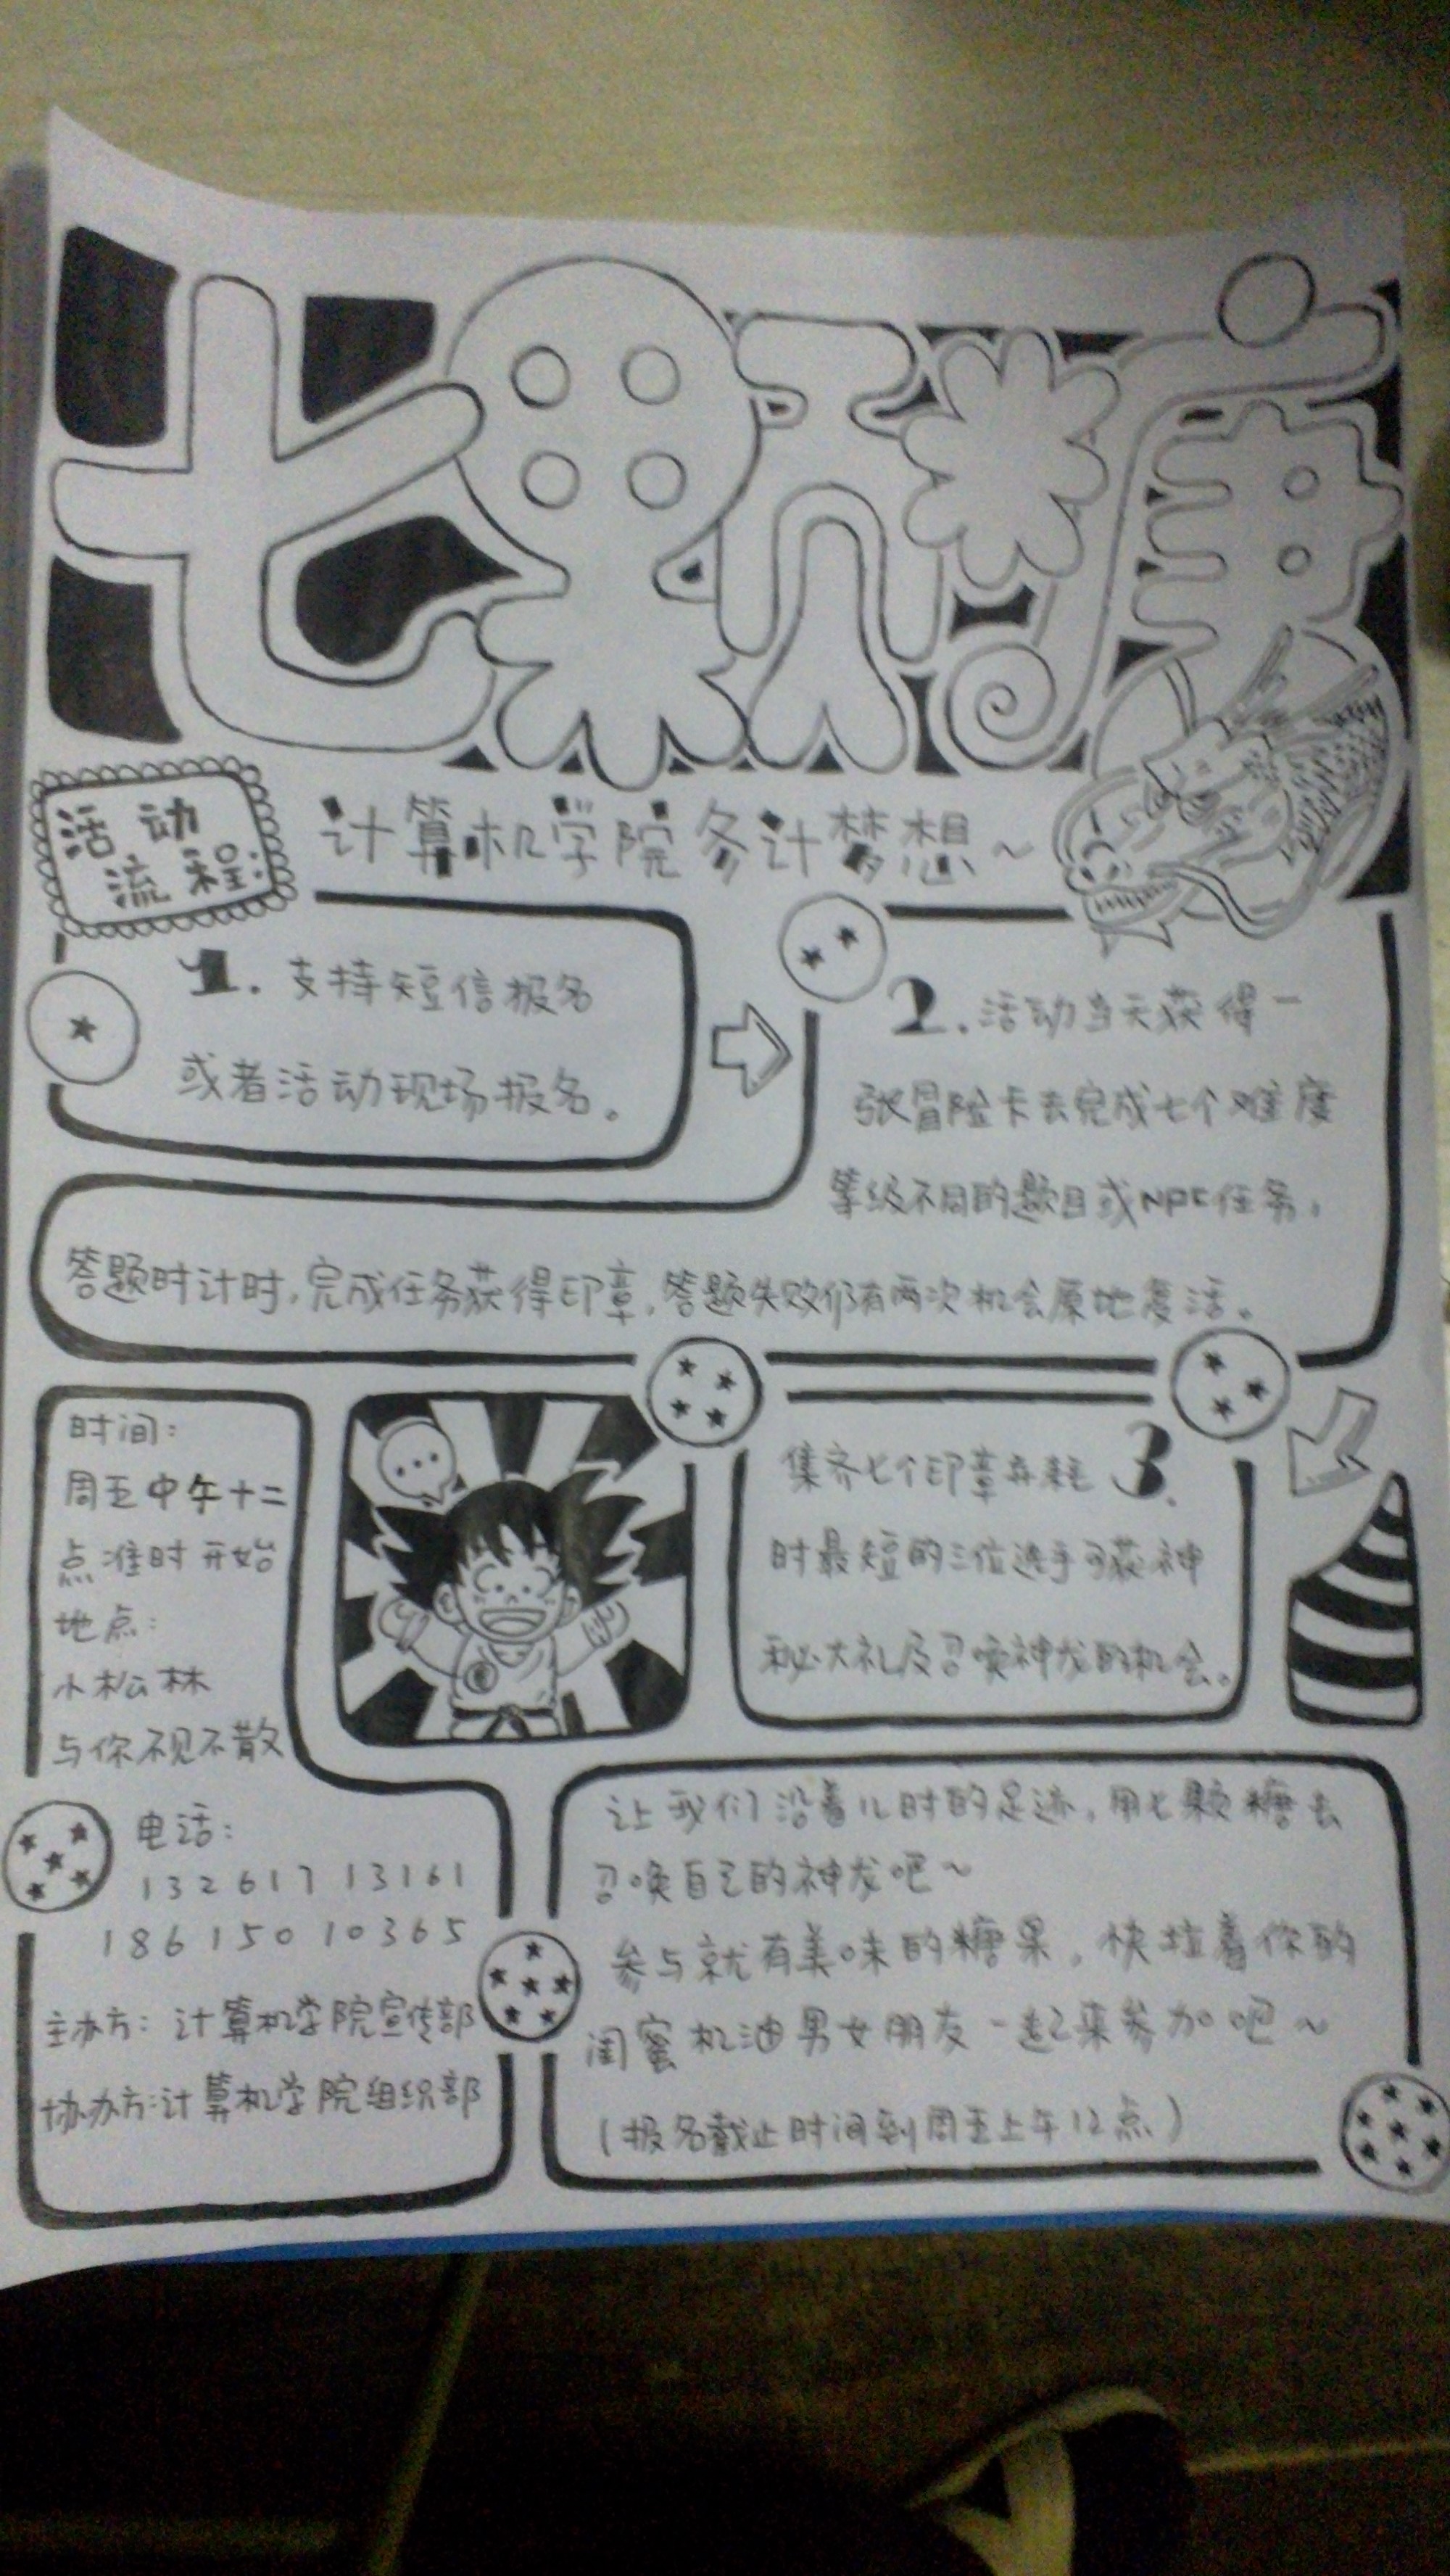 七颗糖
计算机学院务计梦想~
活动
流程:
1. 支持短信报名
或者活动现场报名。
2. 活动当天获得一
张冒险卡去完成七个难度
等级不同的题目或NPC任务,
答题时计时,完成任务获得印章,答题失败仍有两次机会原地复活。
集齐七个印章并耗 3.
时最短的三位选手可获神
秘大礼及召唤神龙的机会。
时间:
周五中午十二
点准时开始
地点:
小松林
与你不见不散
电话:
132617 13161
186150 10365
主办方: 计算机学院宣传部
协办方:计算机学院组织部
让我们沿着儿时的足迹,用七颗糖去
召唤自己的神龙吧~
参与就有美味的糖果,快拉着你的
闺蜜机油男女朋友一起来参加吧~
(报名截止时间到周五上午12点)